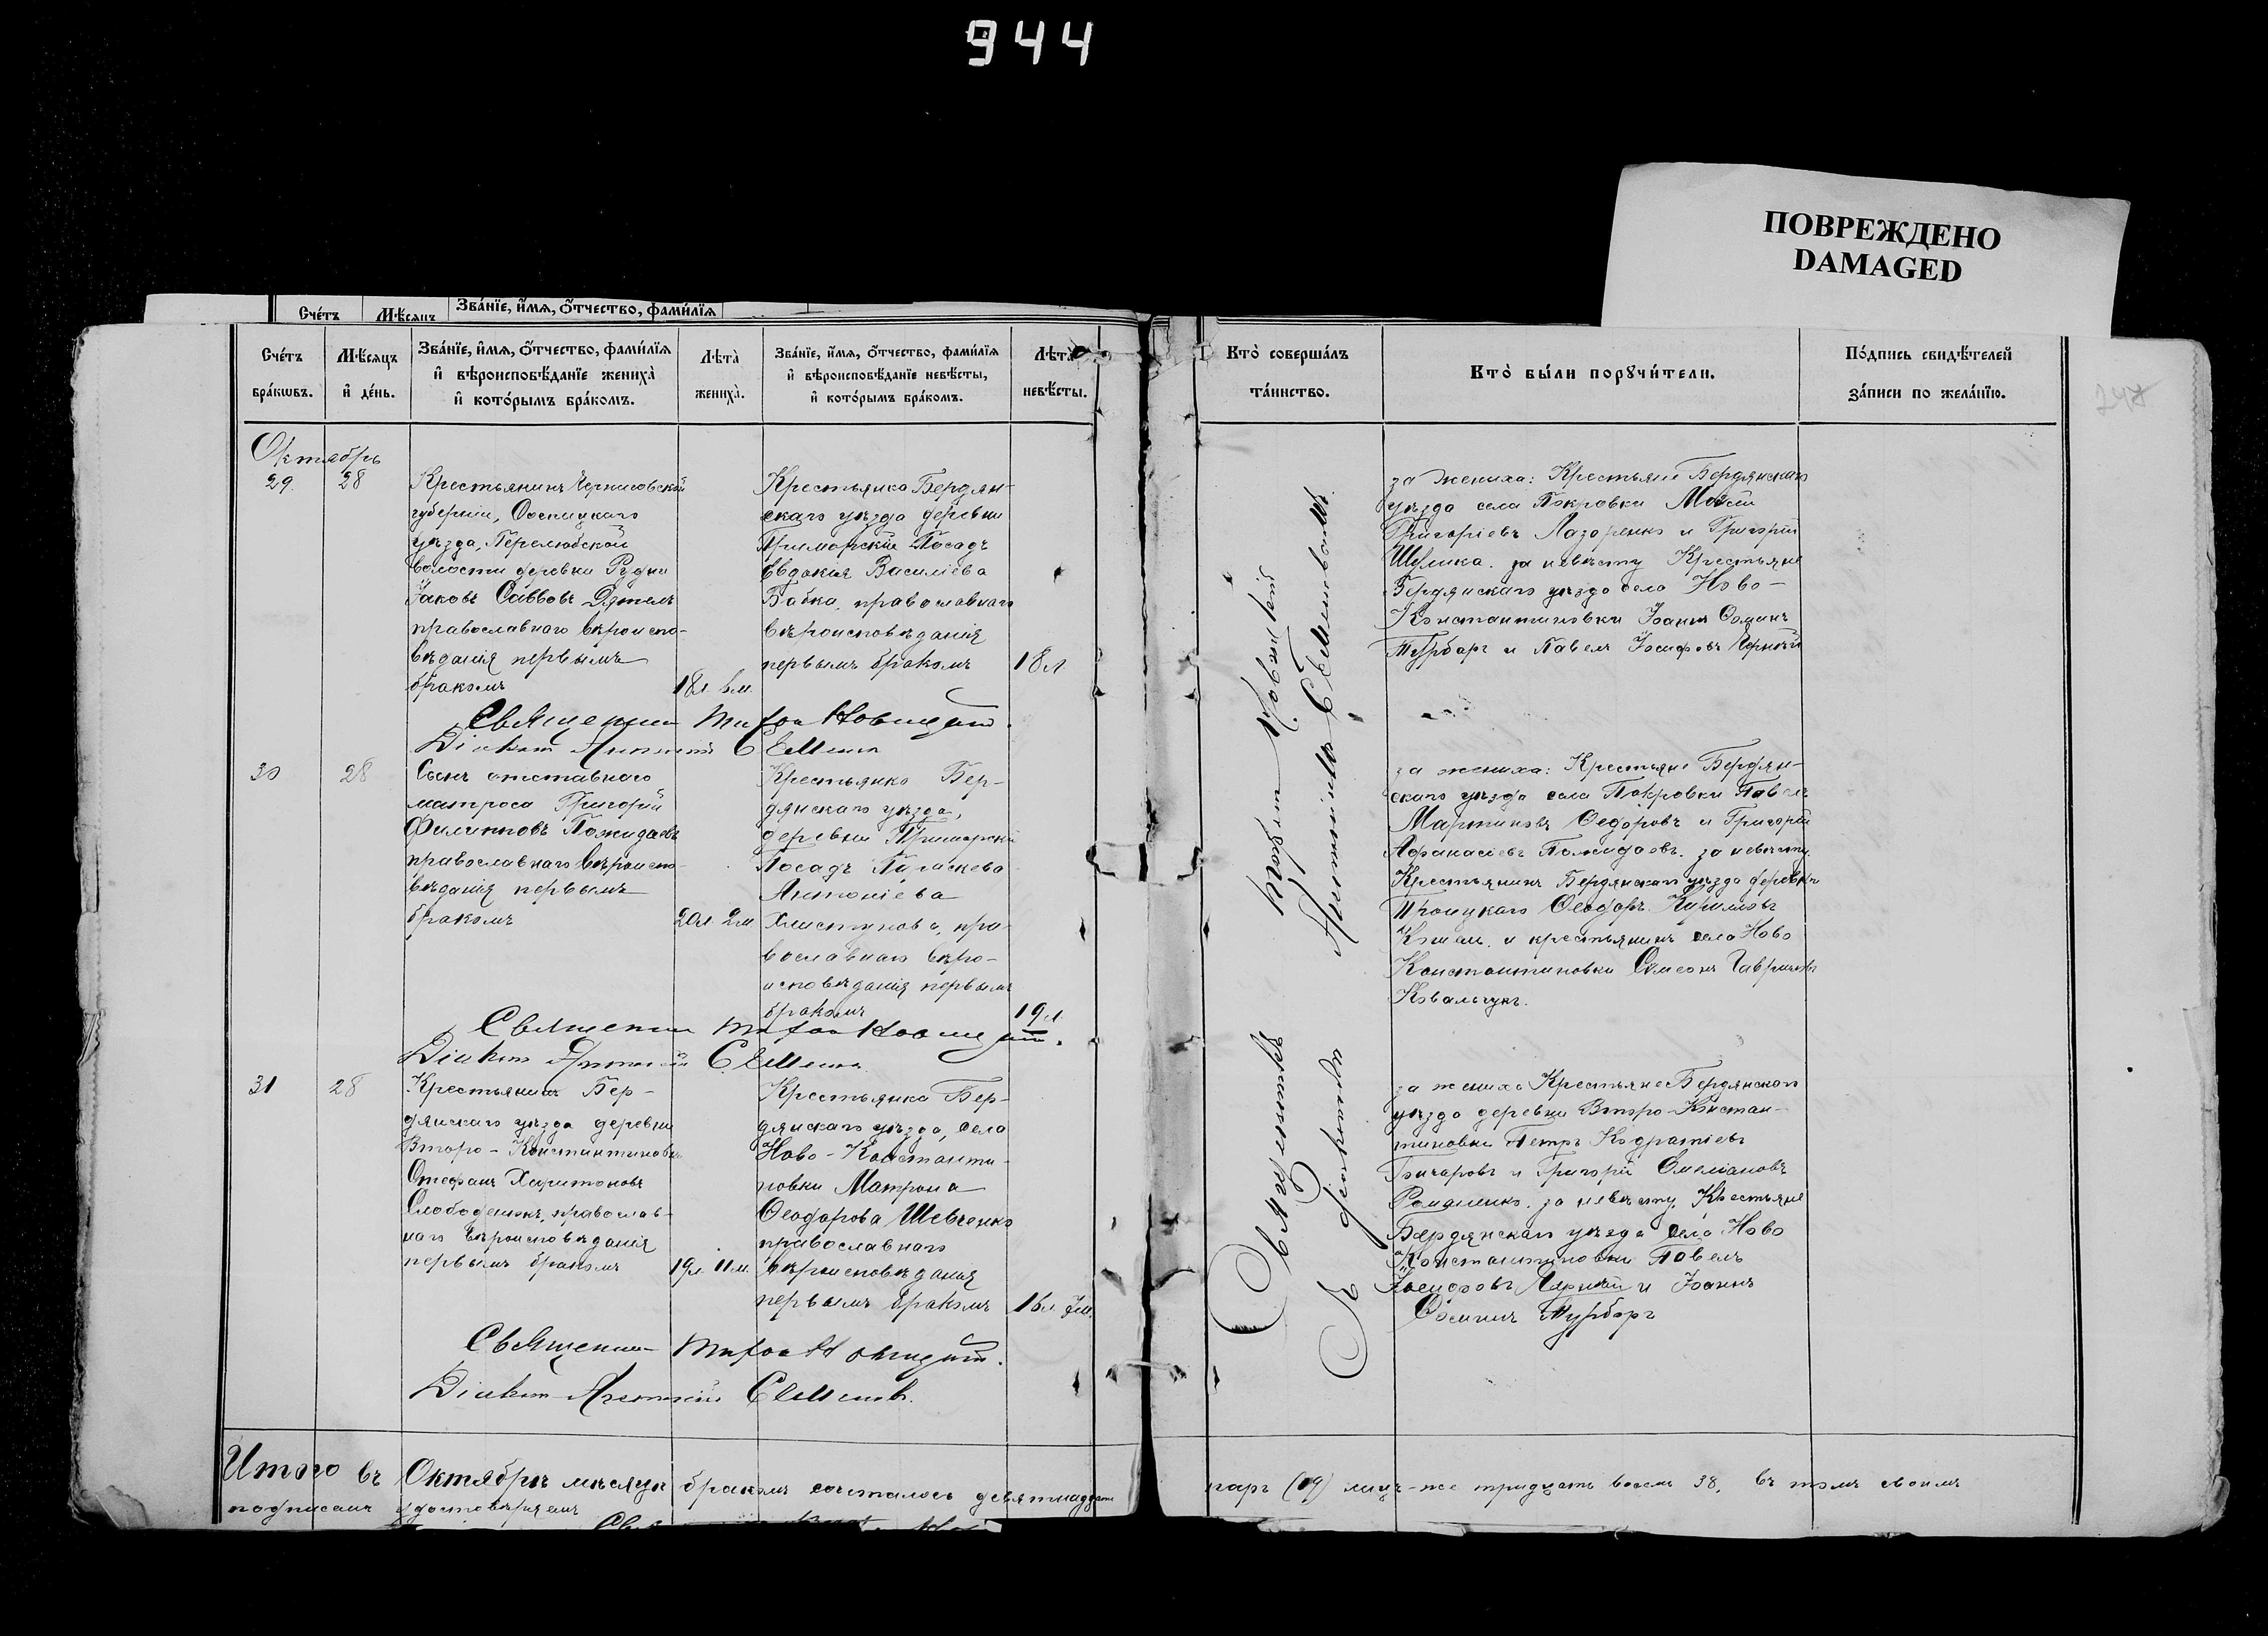 944
ПОВРЕЖДЕНО
DAMAGED
Сче́тъ
Мѣ́сяцъ
Зва́нїе, и́мѧ, ѻ҆́тчество, фами́лїѧ
Сче́тъ бра́кѡвъ.
Мѣ́сяцъ и де́нь.
Зва́нїе, и́мѧ, ѻ҆́тчество, фами́лїѧ и вѣроисповѣ́данїе жениха̀ и кото́рымъ бра́комъ.
Лѣта̀ жениха̀.
Зва́нїе, и́мѧ, ѻ҆́тчество, фами́лїѧ и вѣроисповѣ́данїе невѣ́сты, и кото́рымъ бра́комъ.
Лѣта̀ невѣ́сты.
Кто̀ соверша́лъ та́инство.
Кто̀ бы́ли порꙋчи́тели.
По́дпись свидѣ́телей за́писи по жела́нїю.
Октябрь
29.
28
Крестьянинъ Черниговской
губерніи, Сосницкаго
уѣзда, Перелюбской
волости деревни Рудни
Іаковъ Саввовъ Дятелъ
православнаго вѣроиспо-
вѣданія первымъ
бракомъ
18л. 6м.
Крестьянка Бердян-
скаго уѣзда деревни
Приморскій Посадъ
Евдокія Василіева
Бабка, православнаго
вѣроисповѣданія
первымъ бракомъ
18л
за жениха: Крестьяне Бердянскаго
уѣзда села Покровки Моѵсей
Григоріевъ Лазоренко и Григорій
Шулика. за невѣсту Крестьяне
Бердянскаго уѣзда села Ново-
Константиновки Іоаннъ
и Павелъ Іосифовъ Чорный
Діаконъ
30
28
Сынъ отставнаго
матроса Григорій
Филипповъ Пожидаевъ
православнаго вѣроиспо-
вѣданія первымъ
бракомъ
20л 2м
Крестьянка Бер-
дянскаго уѣзда,
деревни Приморскій
Посадъ Параскева
Антоніева
Хлистунова, пра-
вославнаго вѣро-
исповѣданія первымъ
бракомъ
19л
за жениха: Крестьяне Бердян-
скаго уѣзда села Покровки Павелъ
Мартиновъ Федоровъ и Григорій
Афанасіевъ Пожидаевъ. за невѣсту.
Крестьянинъ Бердянскаго уѣзда деревни
Троицкаго Ѳеодоръ Кириловъ
и крестьянинъ села Ново
Константиновки Симеонъ Гавриловъ
Ковальчукъ.
Діаконъ
31
28
Крестьянинъ Бер-
дянскаго уѣзда деревни
Второ-Константиновки
Стефанъ Харитоновъ
Слободенюкъ, православ-
наго вѣроисповѣданія
первымъ бракомъ
19л 11м.
Крестьянка Бер-
дянскаго уѣзда, села
Ново-Константи-
новки Матрона
Ѳеодорова Шевченко
православнаго
вѣроисповѣданія
первымъ бракомъ
16л
за жениха Крестьяне Бердянскаго
уѣзда деревни Второ-Констан-
тиновки Петръ Кодратіевъ
Гончаровъ и Григорій Омеліановъ
Романенко. за невѣсту. Крестьяне
Бердянскаго уѣзда села Ново
Константиновки Павелъ
Іосифовъ Чорный и Іоаннъ
Діаконъ
Священникъ
Съ діакономъ
Итого въ Октябрѣ мѣсяцѣ бракомъ сочеталось девятнадцать паръ (19) лицъ-же тридцать восемь 38. въ томъ своимъ
подписомъ удостовѣряемъ